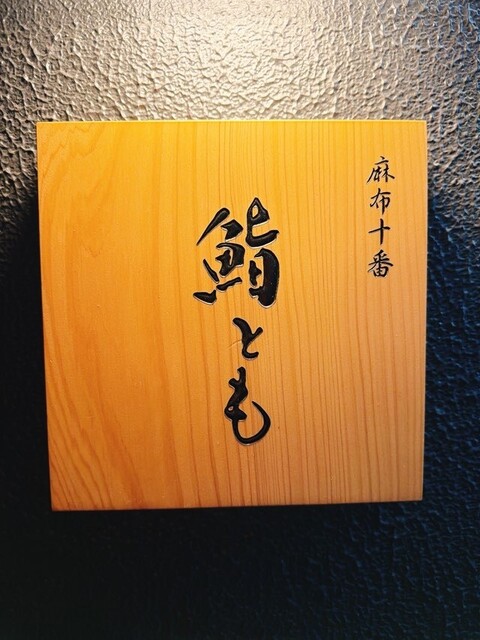 麻布十番
鮨とも